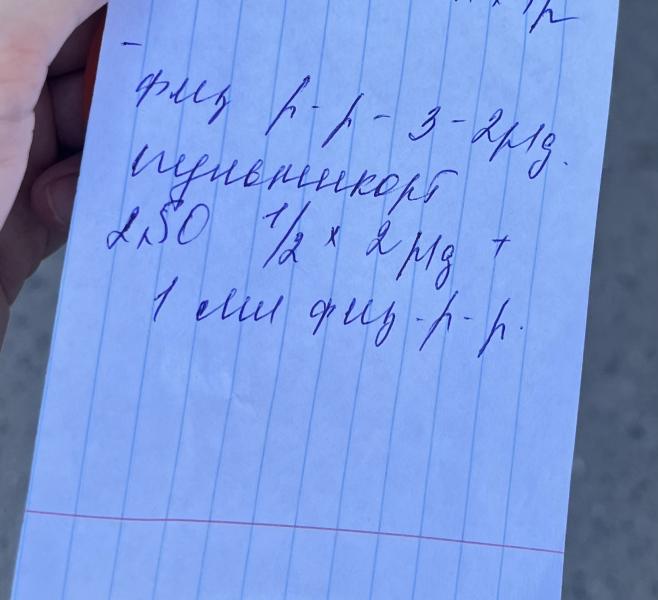 физ р-р- 3-2р/д.
пульмикорт
250 1/2 x 2р/д +
1 мл физ-р-р.